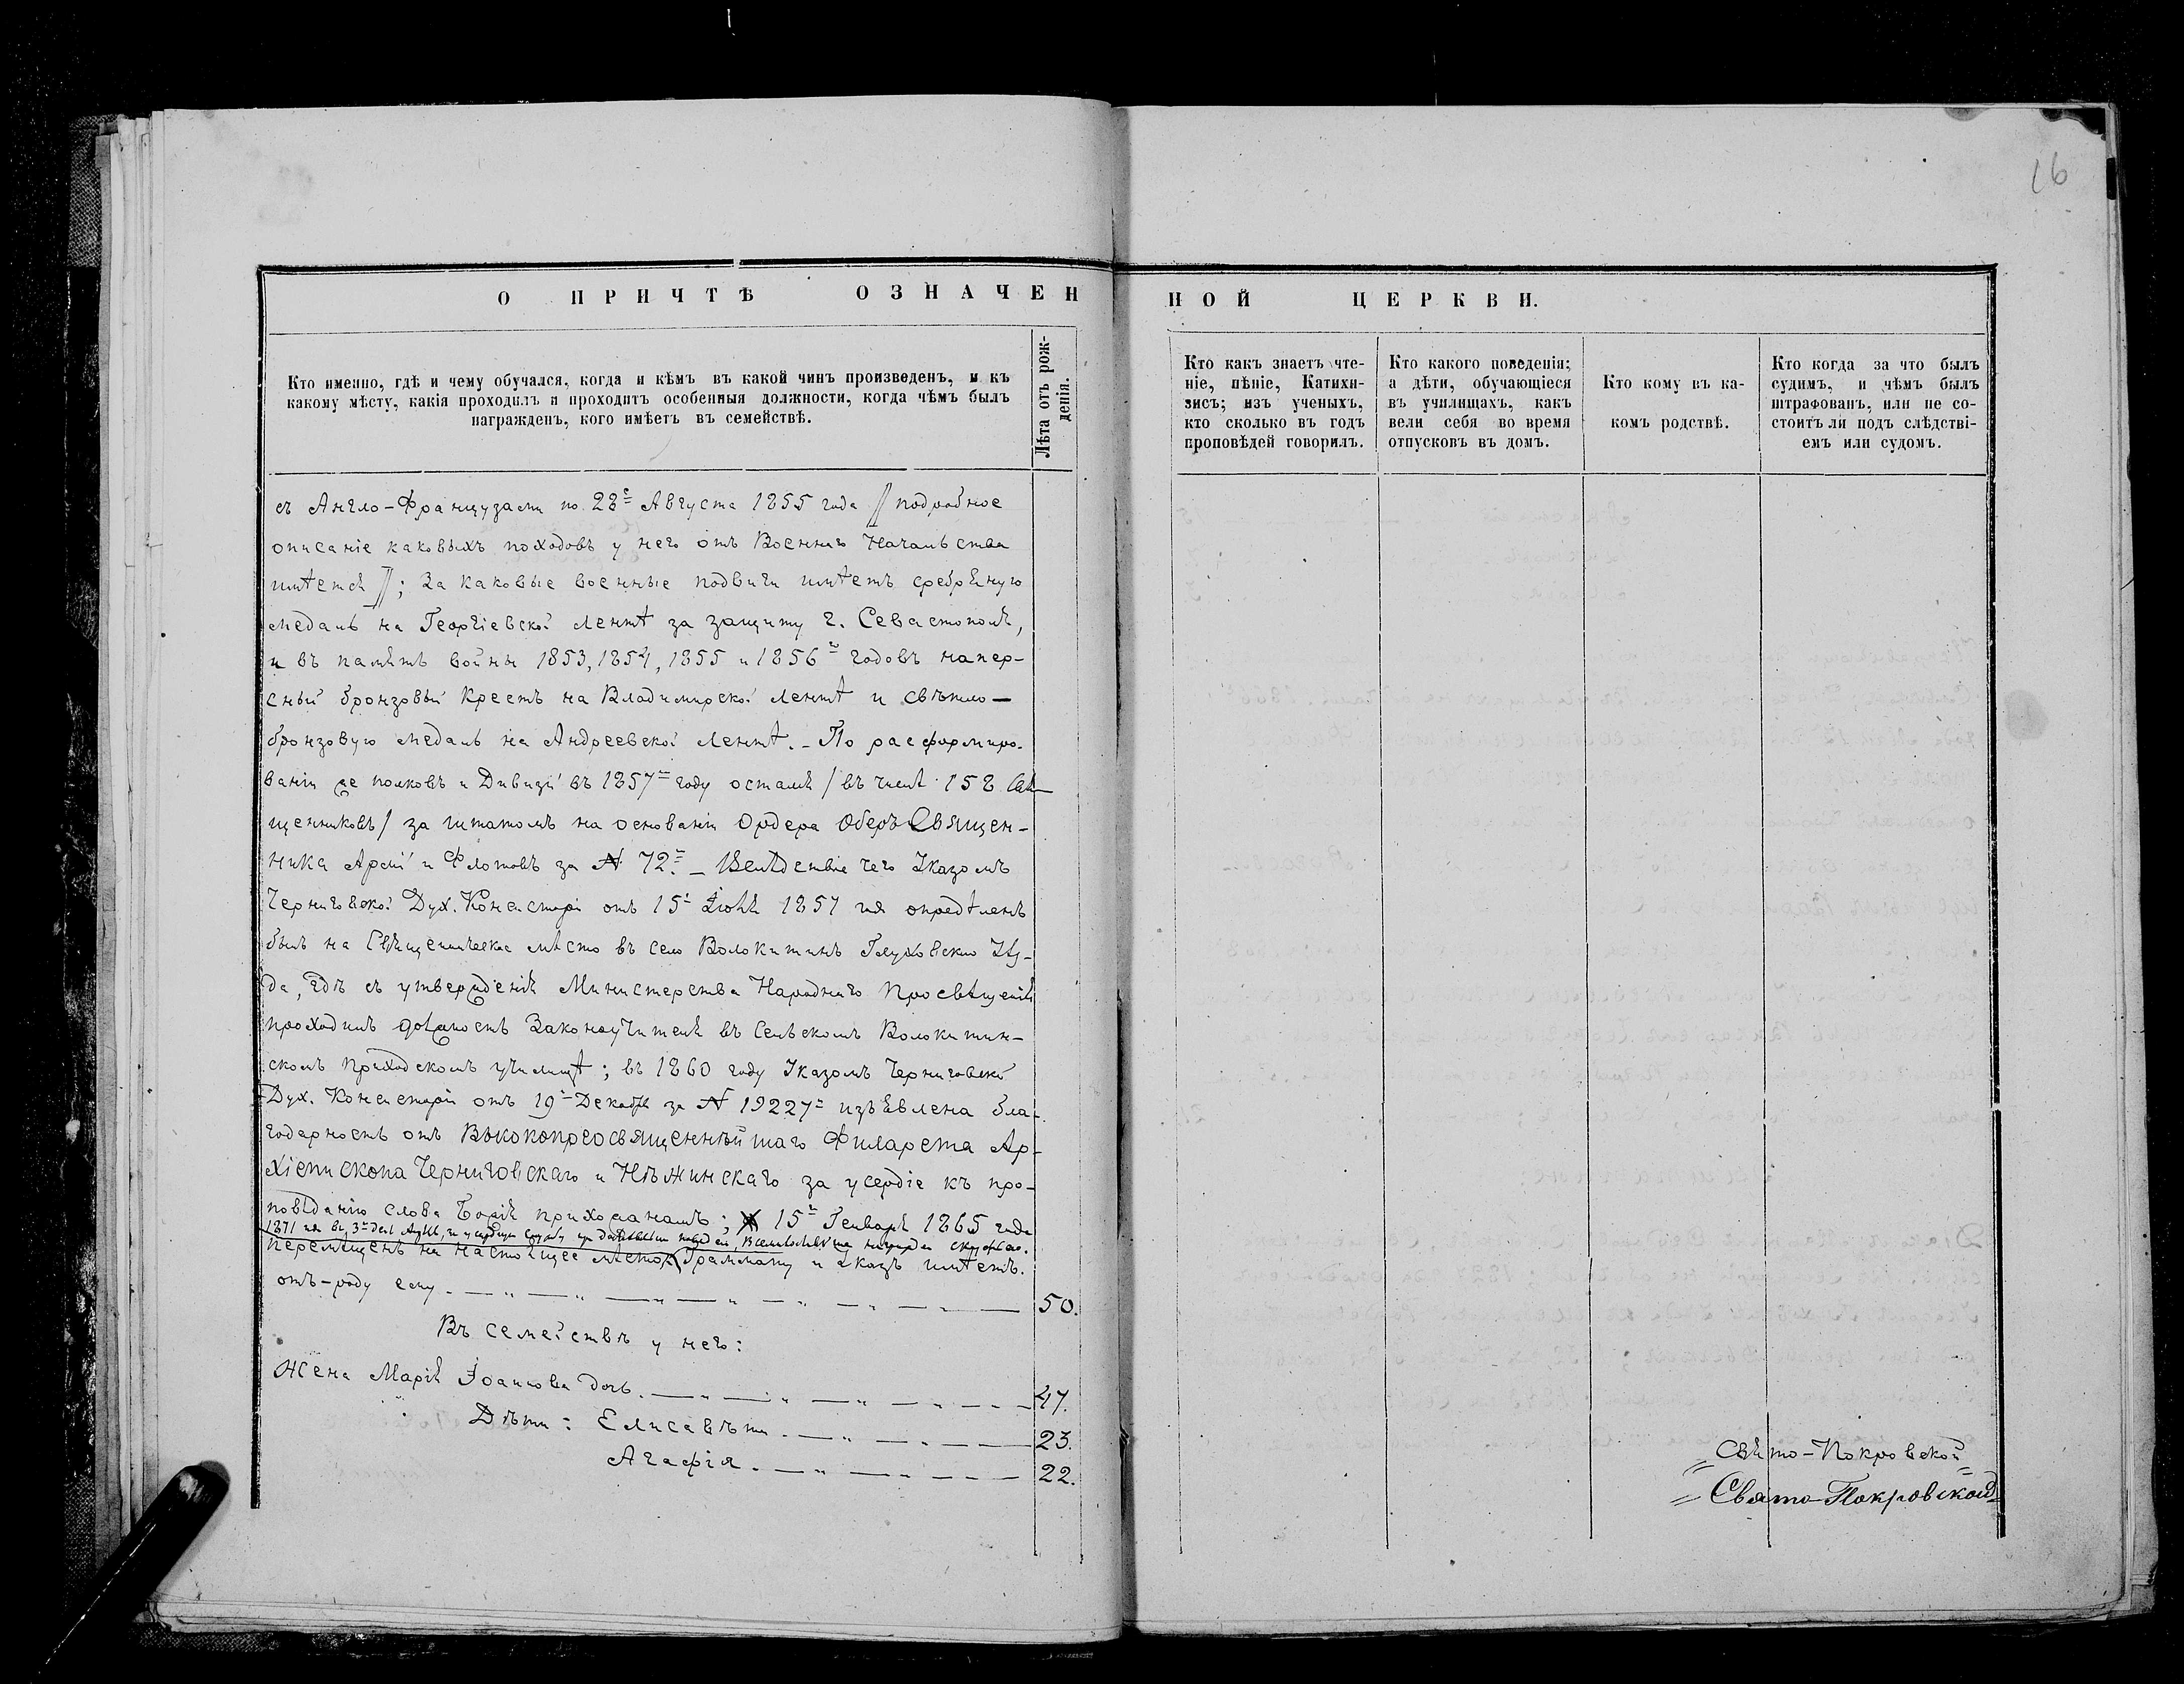 16
О ПРИЧТѢ ОЗНАЧЕННОЙ ЦЕРКВИ.
Кто именно, гдѣ и чему обучался, когда и кѣмъ въ какой чинъ произведенъ, и къ
какому мѣсту, какія проходилъ и проходитъ особенныя должности, когда чѣмъ былъ
награжденъ, кого имѣетъ въ семействѣ.
Лѣта отъ рож-
денія.
Кто какъ знаетъ чте-
ніе, пѣніе, Катихи-
зисъ; изъ ученыхъ,
кто сколько въ годъ
проповѣдей говорилъ.
Кто какого поведенія;
а дѣти, обучающіеся
въ училищахъ, какъ
вели себя во время
отпусковъ въ домъ.
Кто кому въ ка-
комъ родствѣ.
Кто когда за что былъ
судимъ, и чѣмъ былъ
штрафованъ, или не со-
стоитъ ли подъ слѣдстві-
емъ или судомъ.
съ Англо-Французами по 28е Августа 1855 года // подробное
описаніе каковыхъ походовъ у него отъ Военнаго Начальства
имѣется //; За каковые военные подвиги имѣетъ сребряную
медаль на Георгіевской лентѣ за защиту г. Севастополя,
и въ память войны 1853, 1854, 1855 и 1856го годовъ напер-
сный бронзовый Крестъ на Владимирской лентѣ и свѣтло-
бронзовую медаль на Андреевской лентѣ. - По расформиро-
ваніи же полковъ и Дивизій въ 1857м году остался / въ числѣ 158 Свя-
щенниковъ / за штатомъ на основаніи Ордера Оберъ Священ-
ника Арміи и Флотовъ за № 72м. - Вслѣдствіе чего Указомъ
Черниговской Дух. Консисторіи отъ 15 Іюня 1857 года опредѣленъ
былъ на Священническое мѣсто въ село Волокитинъ Глуховскаго Уѣз-
да, гдѣ съ утвержденія Министерства Народнаго Просвѣщенія
проходилъ должность Законоучителя въ Сельскомъ Волокитин-
скомъ приходскомъ училищѣ; въ 1860 году Указомъ Черниговской
Дух. Консисторіи отъ 19 Декабря за № 19227м изъявлена бла-
годарность отъ Высокопреосвященнѣйшаго Филарета Ар-
хіепископа Черниговскаго и Нѣжинскаго за усердіе къ про-
повѣданію слова Божія прихожанамъ; 15го Генваря 1865 года
1871 года въ 3й день за усердную службу награжден скуфьею.
перемѣщенъ на настоящее мѣсто; Граммату и Указъ имѣетъ.
отъ-роду ему 50.
Въ семействѣ у него:
Жена Марія Іоаннова дочь. 47.
Дѣти: Елисавѣта 23.
Агафія. 22.
Свято-Покровской
Свято-Покровской